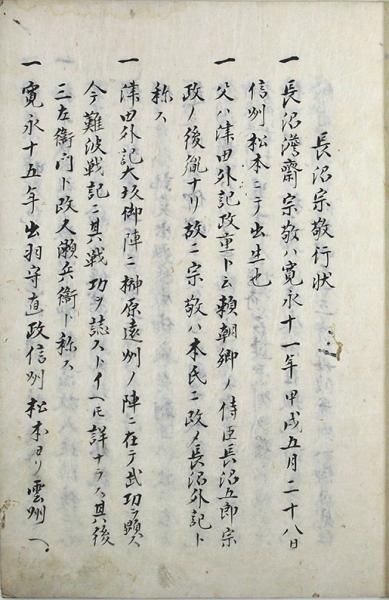 長沼宗敬行状
一 長沼澹齋宗敬ハ寛永十一年甲戌五月二十八日
信州松本ニテ出生也
一 父ハ津田外記政重ト云頼朝卿ノ侍臣長沼五郎宗
政ノ後胤ナリ故ニ宗敬ハ本氏ニ改メ長沼外記ト
称ス
一 津田外記大坂御陣ニ榊原遠州ノ陣ニ在テ武功ヲ顕ス
今難波戦記ニ其戦功ヲ誌ストイヘ𪜈詳ナラス其後
三左衛門ト改久瀬兵衛ト称ス
一 寛永十五年出羽守直政信州松本ヨリ雲州ヘ